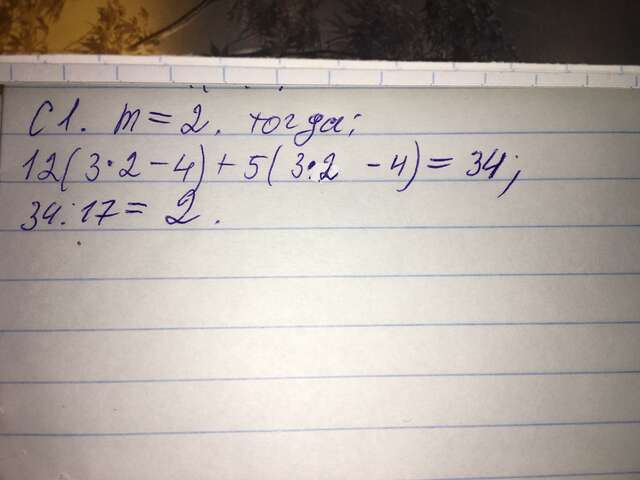 C1. m = 2, тогда;
12(3·2 - 4) + 5(3·2 - 4) = 34;
34:17 = 2.